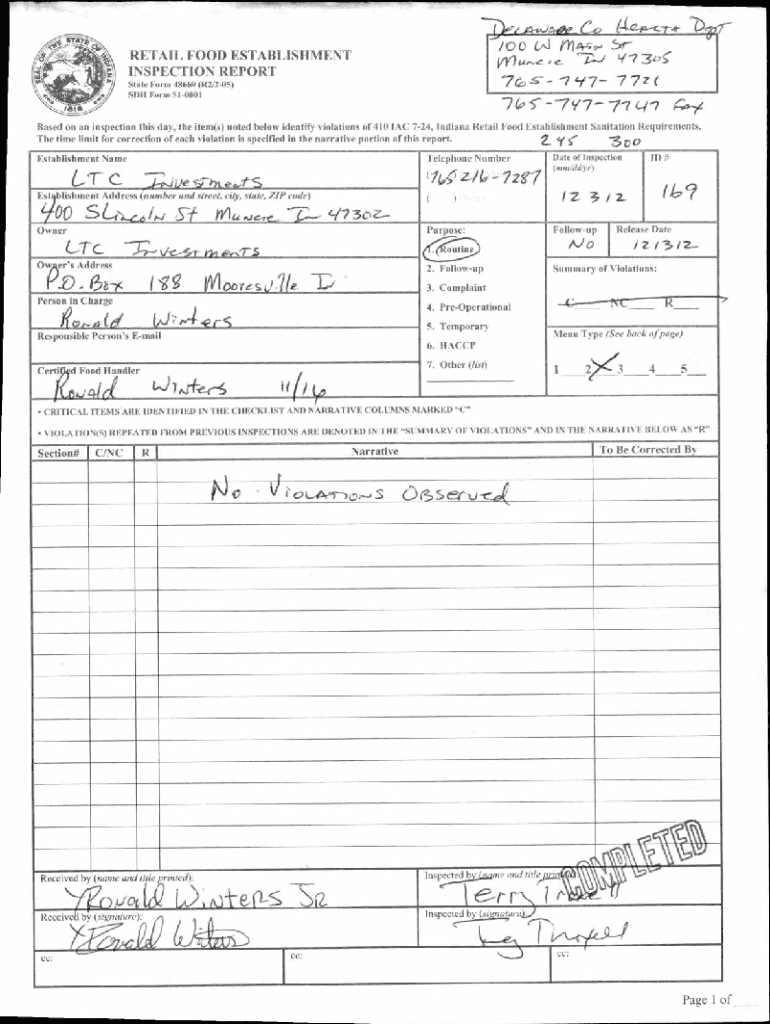 DELAWARE CO HEALTH DPT
100 W MAIN ST
Muncie IN 47305
765-747-7721
765-747-7747 Fax
SEAL OF THE STATE OF INDIANA
1816
RETAIL FOOD ESTABLISHMENT
INSPECTION REPORT
State Form 48669 (R2/2-05)
SDH Form 51-0001
Based on an inspection this day, the item(s) noted below identify violations of 410 IAC 7-24, Indiana Retail Food Establishment Sanitation Requirements.
The time limit for correction of each violation is specified in the narrative portion of this report.
245 300
Establishment Name
LTC Investments
Telephone Number
(765 216-7287
( )
Date of Inspection
(mm/dd/yr)
12 3 12
ID #
169
Establishment Address (number and street, city, state, ZIP code)
400 S Lincoln St Muncie In 47302
Owner
LTC Investments
Purpose:
1. Routine
2. Follow-up
3. Complaint
4. Pre-Operational
5. Temporary
6. HACCP
7. Other (list)
Follow-up
NO
Release Date
12/3/12
Owner's Address
P.O. Box 188 Mooresville I
Summary of Violations:
C NC R
Person in Charge
Ronald Winters
Responsible Person's E-mail
Menu Type (See back of page)
1 2 X 3 4 5
Certified Food Handler
Ronald Winters 11/16
• CRITICAL ITEMS ARE IDENTIFIED IN THE CHECKLIST AND NARRATIVE COLUMNS MARKED "C"
• VIOLATION(S) REPEATED FROM PREVIOUS INSPECTIONS ARE DENOTED IN THE "SUMMARY OF VIOLATIONS" AND IN THE NARRATIVE BELOW AS "R"
Section# C/NC R Narrative To Be Corrected By
No Violations Observed
COMPLETED
Received by (name and title printed):
X Ronald Winters JR
Inspected by (name and title printed)
Terry
Received by (signature):
X Ronald Winters
Inspected by (signature):
cc:
cc:
cc:
Page 1 of